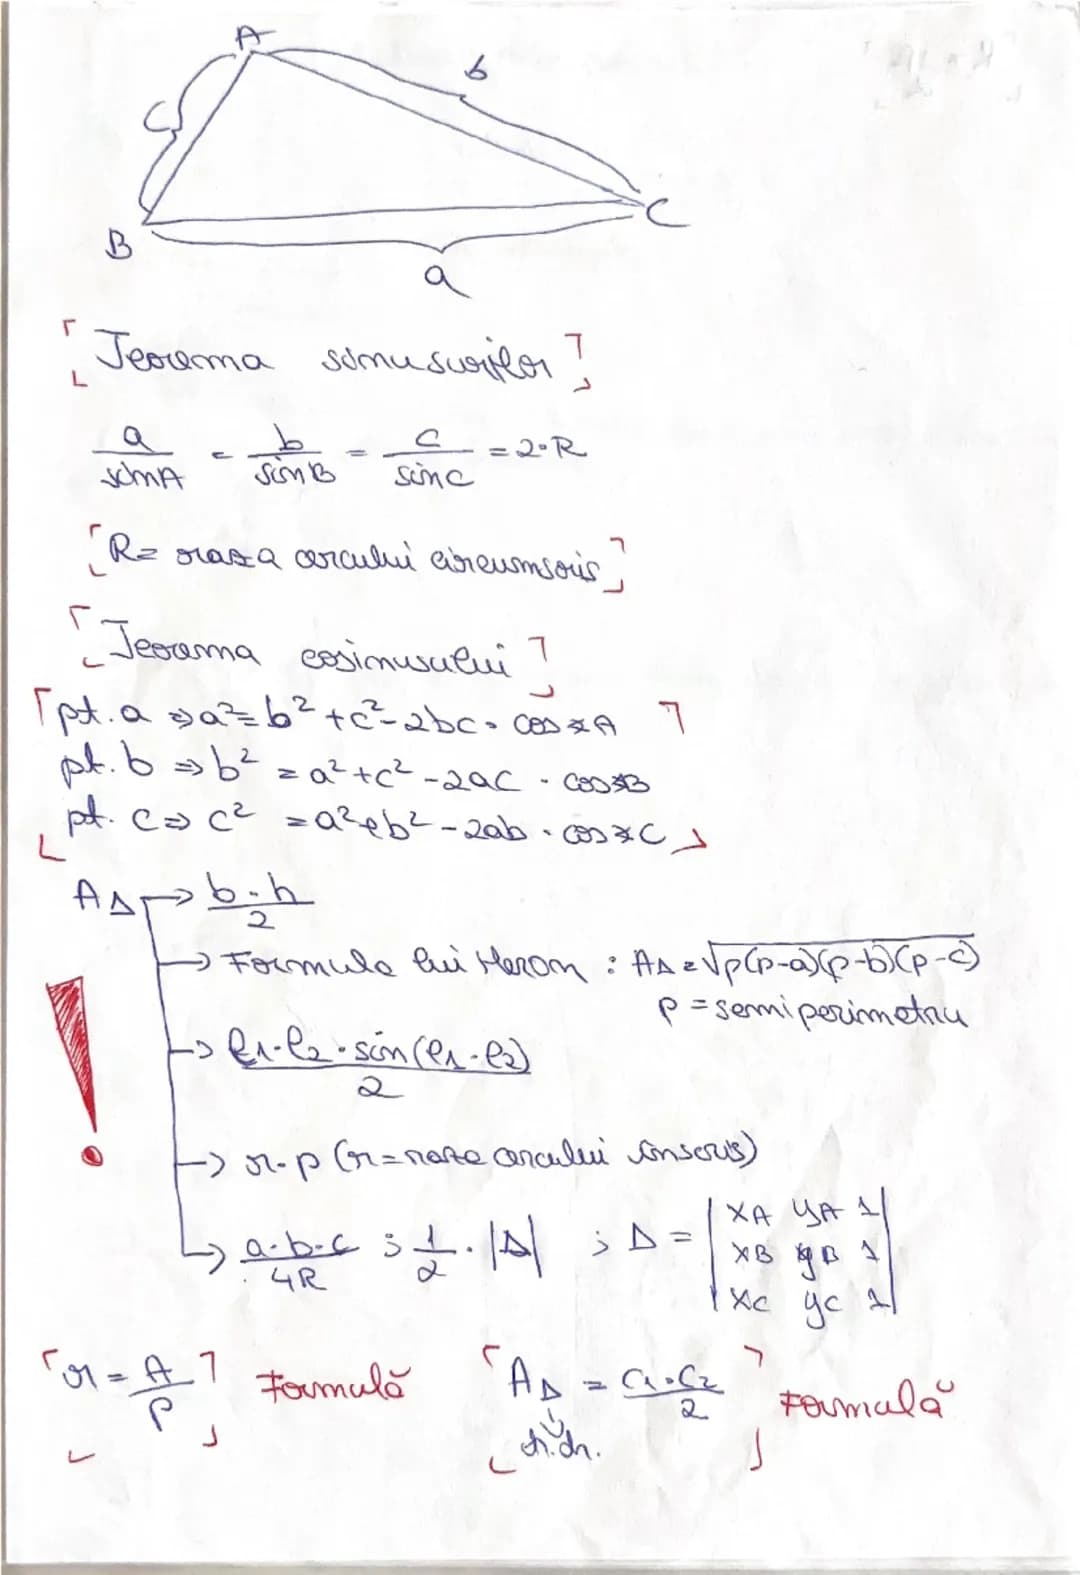 A
b
c
B
C
a
Teorema sinusurilor
a/sinA = b/sinB = c/sinC = 2·R
R= raza cercului circumscris
Teorema cosinusului
pt. a ⇒ a² = b² + c² - 2bc · cos∢A
pt. b ⇒ b² = a² + c² - 2ac · cos∢B
pt. c ⇒ c² = a² + b² - 2ab · cos∢C
A△ → b·h/2
→ Formula lui Heron : A△ = √p(p-a)(p-b)(p-c)
p = semiperimetru
→ l₁·l₂·sin(l₁·l₂)/2
→ r·p (r = raza cercului înscris)
→ a·b·c/4R ; 1/2 · |Δ| ; Δ = | xA yA 1 |
| xB yB 1 |
| xC yC 1 |
r = A/p Formulă A△ = c₁·c₂/2 Formulă
dr.